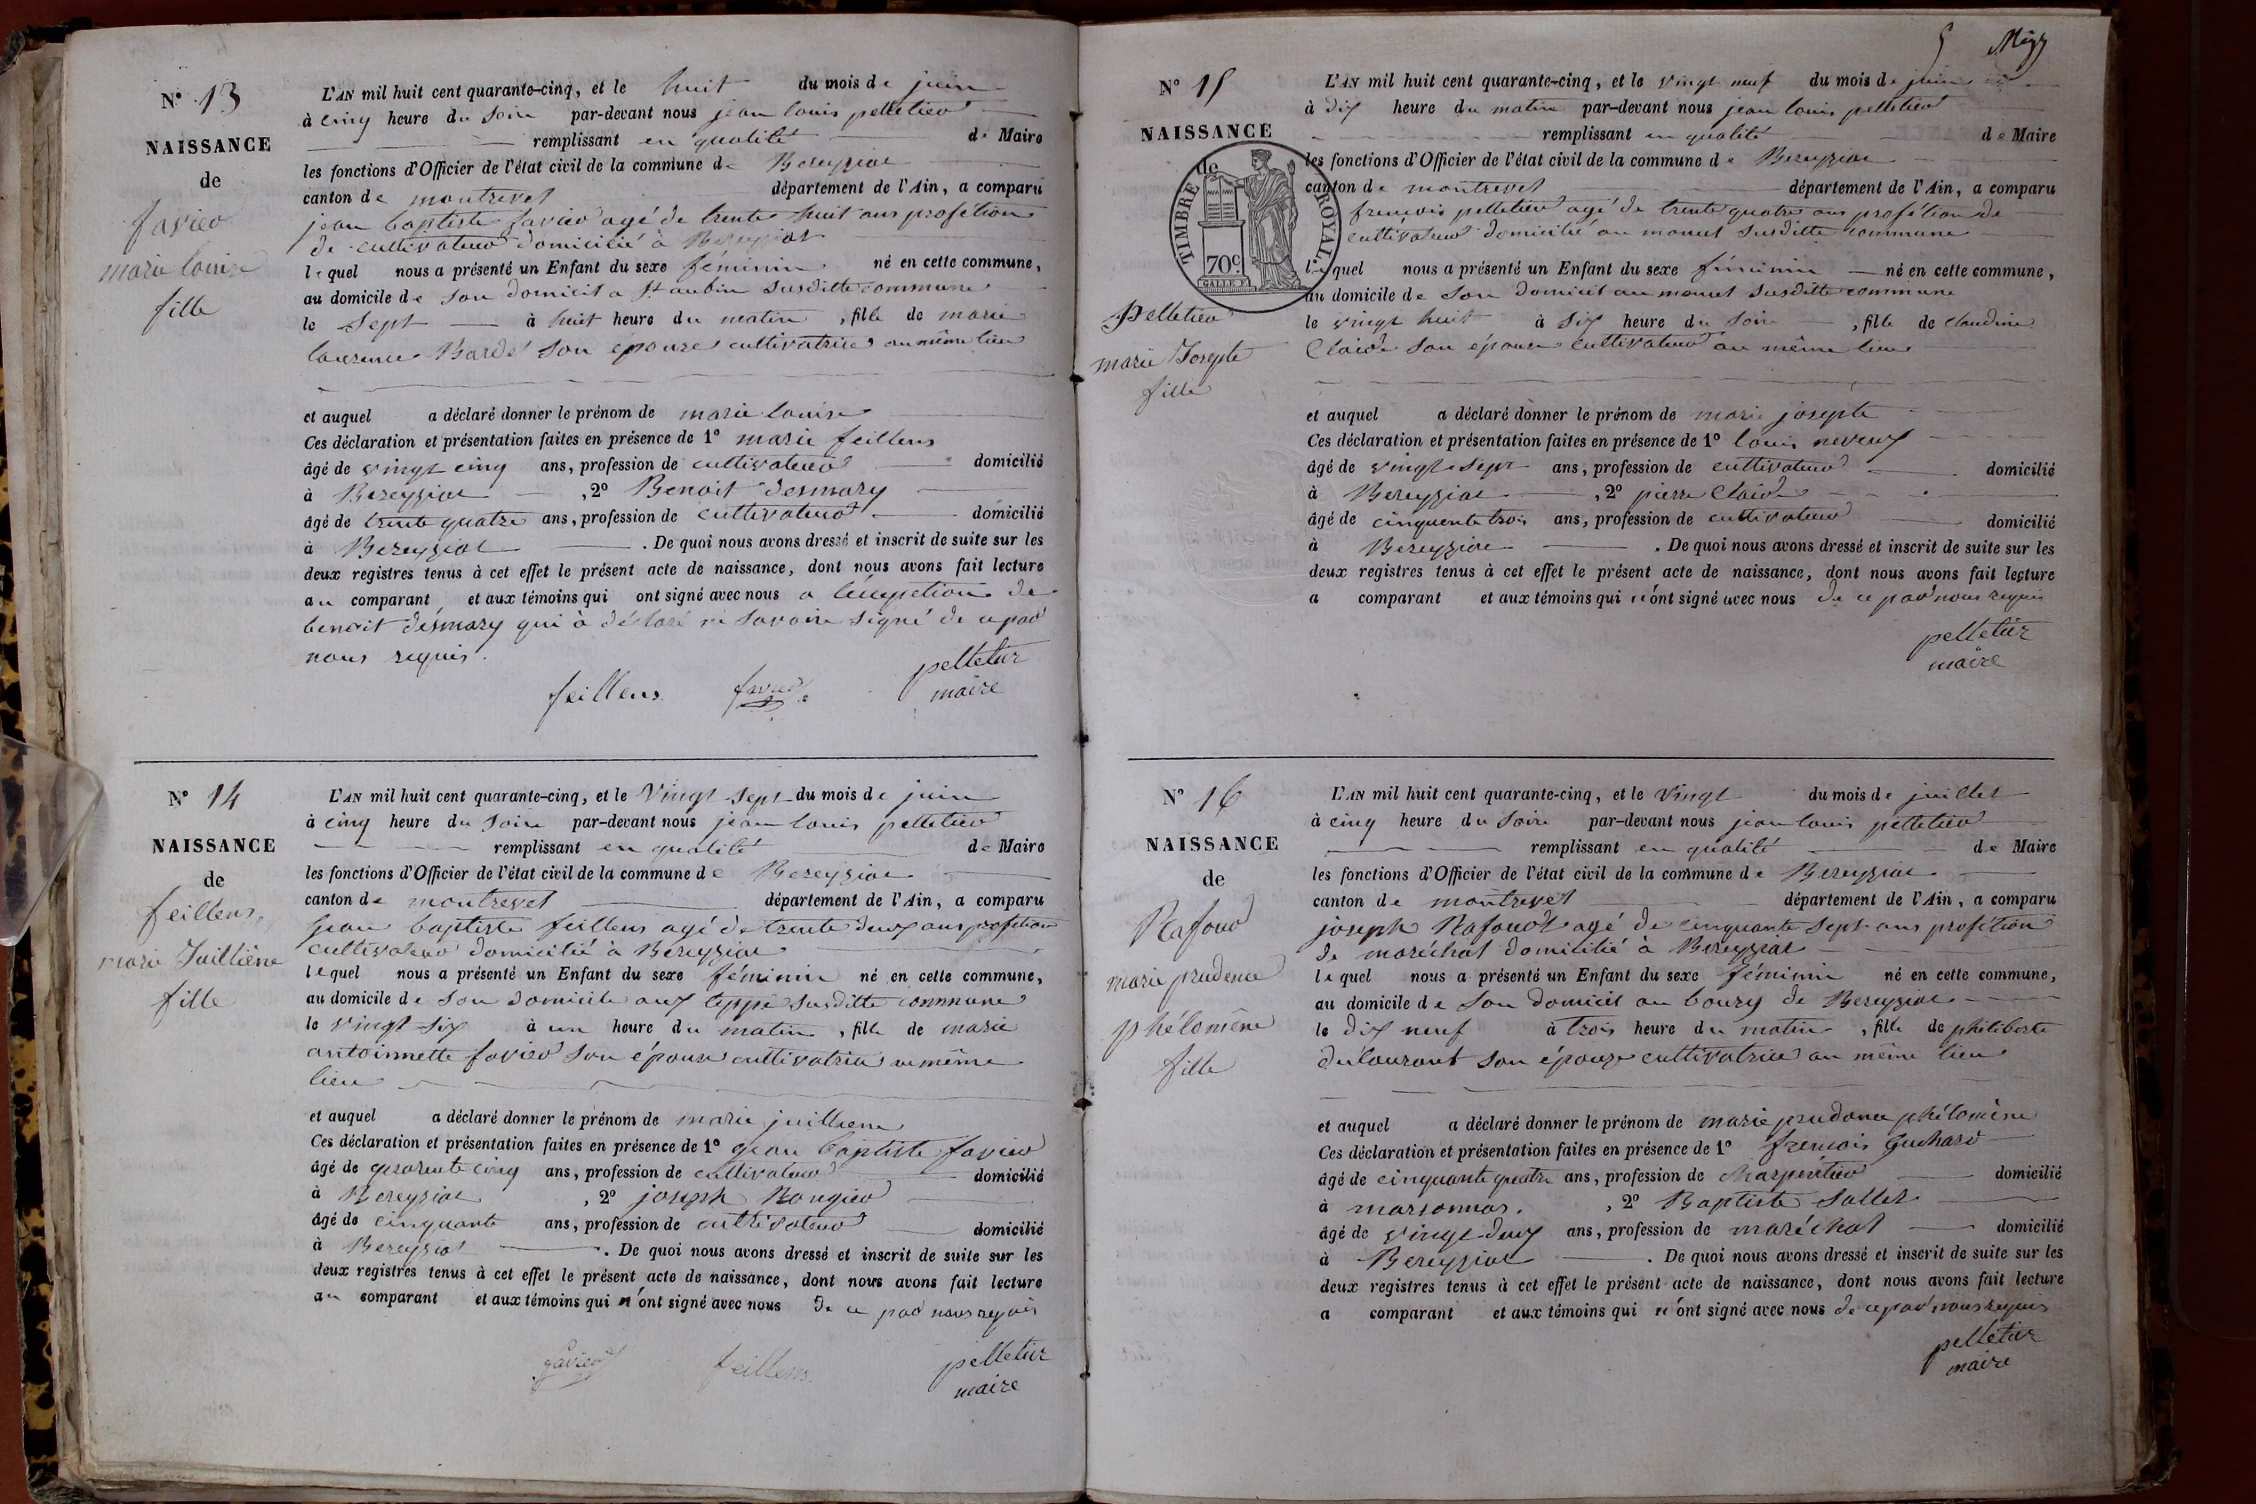 N° 13
NAISSANCE
de
favier
marie louise
fille
L'AN mil huit cent quarante-cinq, et le huit du mois de juin
à cinq heure du Soire par-devant nous jean louis pelletier
remplissant en qualité de Maire
les fonctions d'Officier de l'état civil de la commune de Bereyziat
canton de montrevel département de l'Ain, a comparu
jean baptiste favier agé de trente huit ans profétion
de cultivateur domicilié à Bereyziat
lequel nous a présenté un Enfant du sexe féminin né en cette commune,
au domicile de son domicil a St aubin susditte commune
le Sept à huit heure du matin, fille de marie
laurence Bardet son épouze cultivatrice au même lieu
et auquel a déclaré donner le prénom de marie louise
Ces déclaration et présentation faites en présence de 1° marie feillens
âgé de vingt cinq ans, profession de cultivateur domicilié
à Bereyziat, 2° Benoit desmary
âgé de trente quatre ans, profession de cultivateur domicilié
à Bereyziat. De quoi nous avons dressé et inscrit de suite sur les
deux registres tenus à cet effet le présent acte de naissance, dont nous avons fait lecture
au comparant et aux témoins qui ont signé avec nous a léxception de
benoit desmary qui à déclaré ne savoire signé de ce par
nous requis.
feillens favier pelletier
maire
N° 14
NAISSANCE
de
feillens,
marie Juilliène
fille
L'AN mil huit cent quarante-cinq, et le Vingt Sept du mois de juin
à cinq heure du Soire par-devant nous jean louis pelletier
remplissant en qualité de Maire
les fonctions d'Officier de l'état civil de la commune de Bereyziat
canton de montrevel département de l'Ain, a comparu
jean baptiste feillens agé de trente deux ans profétion
cultivateur domicilié à Bereyziat
lequel nous a présenté un Enfant du sexe féminin né en cette commune,
au domicile de son domicile aux teppe susditte commune
le vingt six à un heure du matin, fille de marie
antoinnette favier son épouse cultivatrice au même
lieu
et auquel a déclaré donner le prénom de marie juilliene
Ces déclaration et présentation faites en présence de 1° jean baptiste favier
âgé de quarente cinq ans, profession de cultivateur domicilié
à Bereyziat, 2° joseph Rongier
âgé de cinquante ans, profession de cultivateur domicilié
à Bereyziat. De quoi nous avons dressé et inscrit de suite sur les
deux registres tenus à cet effet le présent acte de naissance, dont nous avons fait lecture
au comparant et aux témoins qui n'ont signé avec nous de ce par nous requis
favier feillens pelletier
maire
5
N° 15
NAISSANCE
de
TIMBRE ROYAL.
70c
pelletier
marie Josepte
fille
L'AN mil huit cent quarante-cinq, et le vingt neuf du mois de juin
à dix heure du matin par-devant nous jean louis pelletier
remplissant en qualité de Maire
les fonctions d'Officier de l'état civil de la commune de Bereyziat
canton de montrevel département de l'Ain, a comparu
francois pelletier agé de trente quatre ans profétion de
cultivateur domicilié au monet susditte commune
lequel nous a présenté un Enfant du sexe féminin né en cette commune,
au domicile de son domicil au monet susditte commune
le vingt huit à six heure du Soire, fille de claudine
Claide son épouse cultivateur au même lieu
et auquel a déclaré donner le prénom de marie josepte
Ces déclaration et présentation faites en présence de 1° louis neveux
âgé de vingt sept ans, profession de cultivateur domicilié
à Bereyziat, 2° pierre Claide
âgé de cinquente trois ans, profession de cultivateur domicilié
à Bereyziat. De quoi nous avons dressé et inscrit de suite sur les
deux registres tenus à cet effet le présent acte de naissance, dont nous avons fait lecture
a comparant et aux témoins qui n'ont signé avec nous de ce par nous requis
pelletier
maire
N° 16
NAISSANCE
de
Rafour
marie prudence
phélomène
fille
L'AN mil huit cent quarante-cinq, et le vingt du mois de juillet
à cinq heure du Soire par-devant nous jean louis pelletier
remplissant en qualité de Maire
les fonctions d'Officier de l'état civil de la commune de Bereyziat
canton de montrevel département de l'Ain, a comparu
joseph Rafour agé de cinquante sept ans profétion
de maréchal domicilié à Bereyziat
lequel nous a présenté un Enfant du sexe féminin né en cette commune,
au domicile de son domicil au bourg de Bereyziat
le dix neuf à trois heure du matin, fille de philiberte
dulaurant son épouze cultivatrice au même lieu
et auquel a déclaré donner le prénom de marie prudence phélomène
Ces déclaration et présentation faites en présence de 1° francois Guchard
âgé de cinquante quatre ans, profession de charpentier domicilié
à marsonnas., 2° Baptiste Sallet
âgé de vingt-deux ans, profession de maréchal domicilié
à Bereyziat. De quoi nous avons dressé et inscrit de suite sur les
deux registres tenus à cet effet le présent acte de naissance, dont nous avons fait lecture
a comparant et aux témoins qui n'ont signé avec nous de ce par nous requis
pelletier
maire